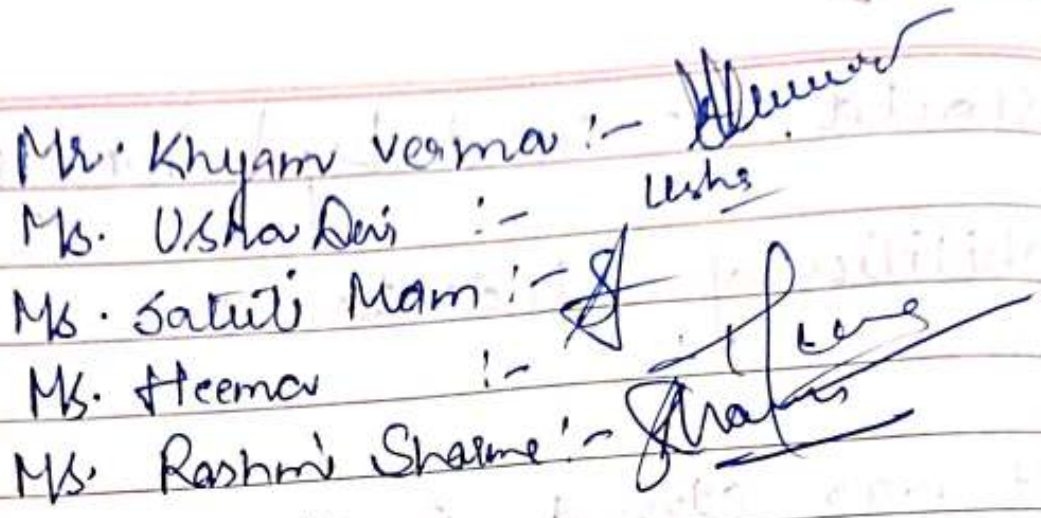 Mr. Khyam Verma :-
Ms. Usha Devi :- Usha
Ms. Satuti Mam :-
Ms. Heema :-
Ms. Rashmi Sharma :-